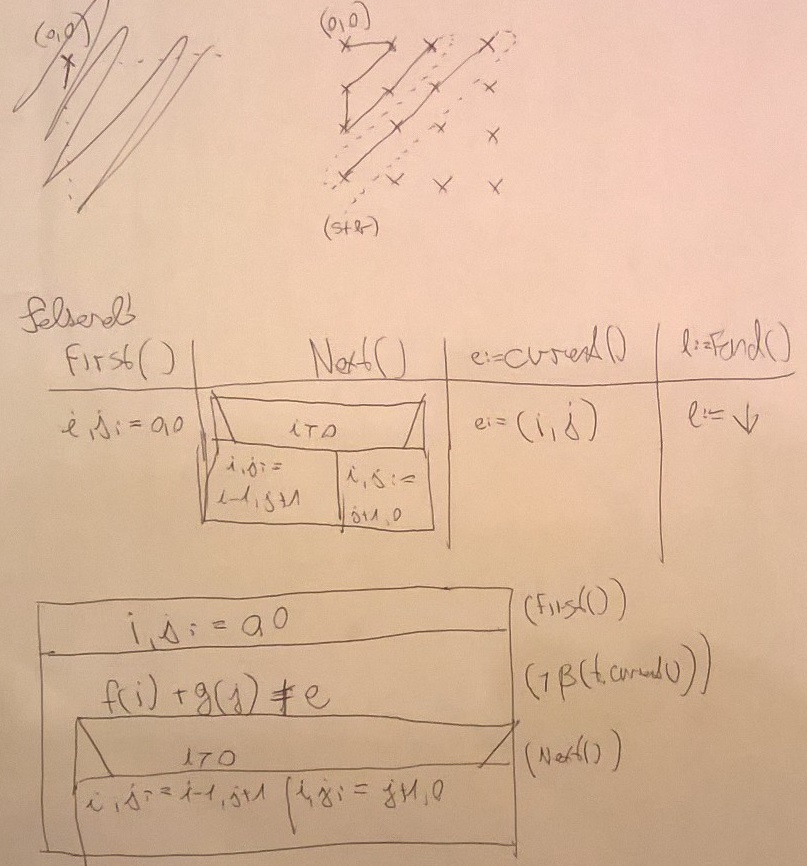 (0,0) (0,0)
(s+k)
felsoroló
First() Next() e:=current() l:=End()
i,j:=0,0 i>0 e:=(i,j) l:=↓
i,j:= i-1,j+1 i,j:= j+1,0
i,j:=0,0 (First())
f(i)+g(j)≠e (¬β(t.current()))
i>0 (Next())
i,j:=i-1,j+1 i,j:=j+1,0